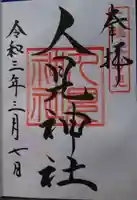 奉拝
人見神社
令和三年三月七日